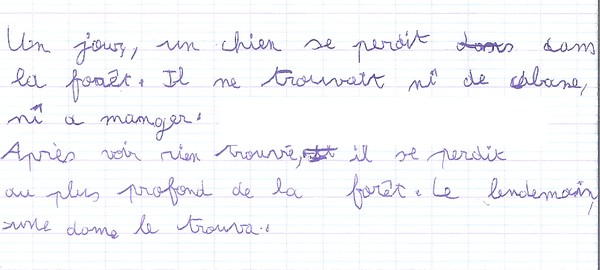 Un jour, un chien se perdit dans
la forêt. Il ne trouvait ni de cabane,
ni a manger.
Après voir rien trouvé, il se perdit
au plus profond de la forêt. Le lendemain,
une dame le trouva..